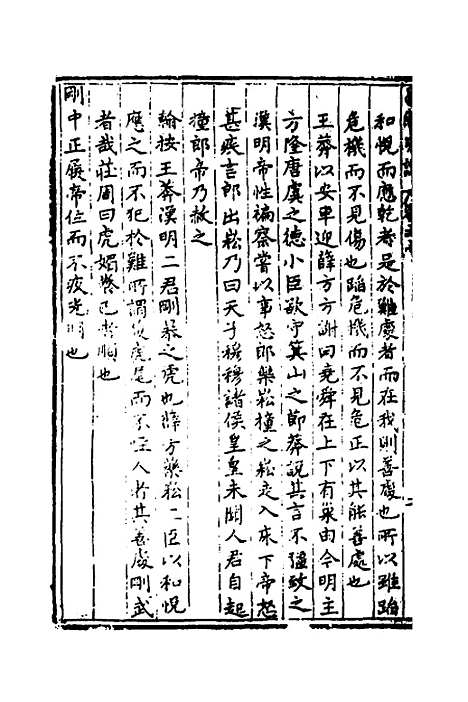 和悅而應乾者是於難處者而在我則善處也所以雖蹈
危機而不見傷也蹈危機而不見危正以其能善處也
王莽以安車迎薛方方謝曰堯舜在上下有巢由今明主
方隆唐虞之德小臣欲守箕山之節莽說其言不強致之
漢明帝性褊察嘗以事怒郎藥崧撞之崧走入床下帝怒
甚疾言郎出崧乃曰天子穆穆諸侯皇皇未聞人君自起
撞郎帝乃赦之
翰按王莽漢明二君剛暴之虎也薛方藥崧二臣以和悅
應之而不犯於難所謂履虎尾而不咥人者其善處剛武
者哉莊周曰虎媚養己者順也
剛中正履帝位而不疚光明也